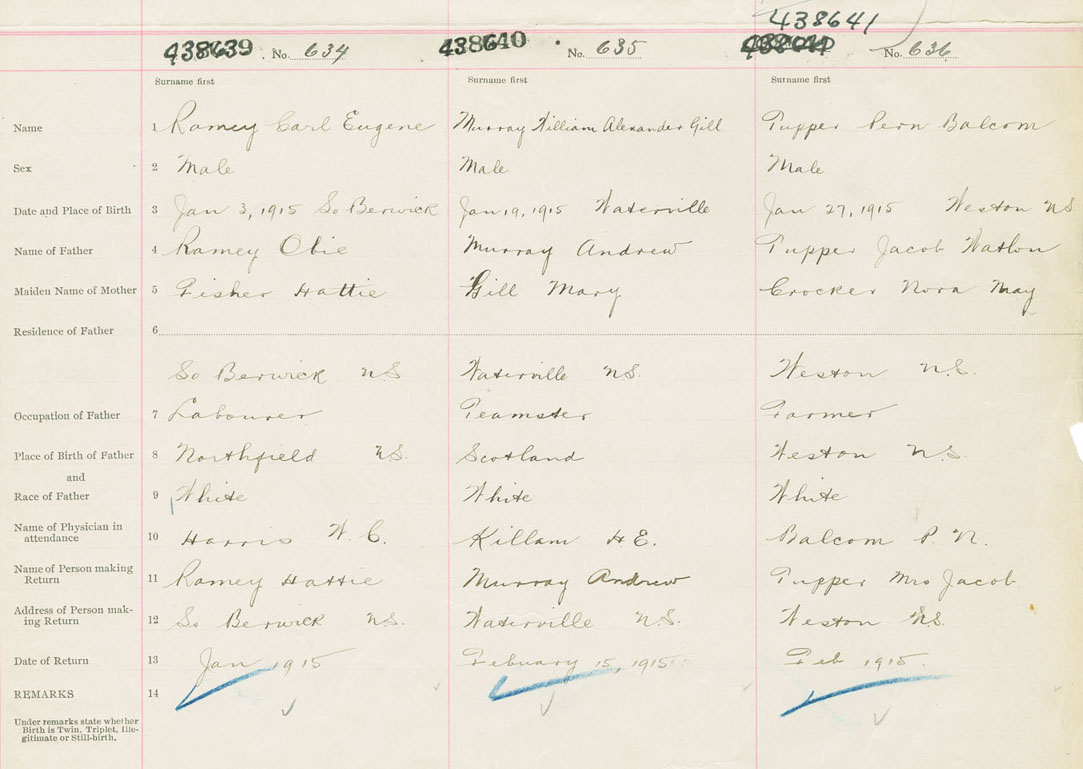 438641
438639 No. 634 438640 No. 635 No. 636
Surname first Surname first Surname first
Name 1 Ramey Carl Eugene Murray William Alexander Gill Tupper Pern Balcom
Sex 2 Male Male Male
Date and Place of Birth 3 Jan 3, 1915 So Berwick Jan 19, 1915 Waterville Jan 27, 1915 Weston N.S.
Name of Father 4 Ramey Obie Murray Andrew Tupper Jacob Watson
Maiden Name of Mother 5 Fisher Hattie Gill Mary Crocker Nora May
Residence of Father 6
So Berwick N.S. Waterville N.S. Weston N.S.
Occupation of Father 7 Labourer Teamster Farmer
Place of Birth of Father 8 Northfield N.S. Scotland Weston N.S.
and
Race of Father 9 White White White
Name of Physician in
attendance 10 Harris W. C. Killam H E. Balcom P. N.
Name of Person making
Return 11 Ramey Hattie Murray Andrew Tupper Mrs Jacob
Address of Person mak-
ing Return 12 So Berwick N.S. Waterville N.S. Weston N.S.
Date of Return 13 Jan 1915 February 15, 1915 Feb 1915.
REMARKS 14
Under remarks state whether
Birth is Twin, Triplet, Ille-
gitimate or Still-birth.